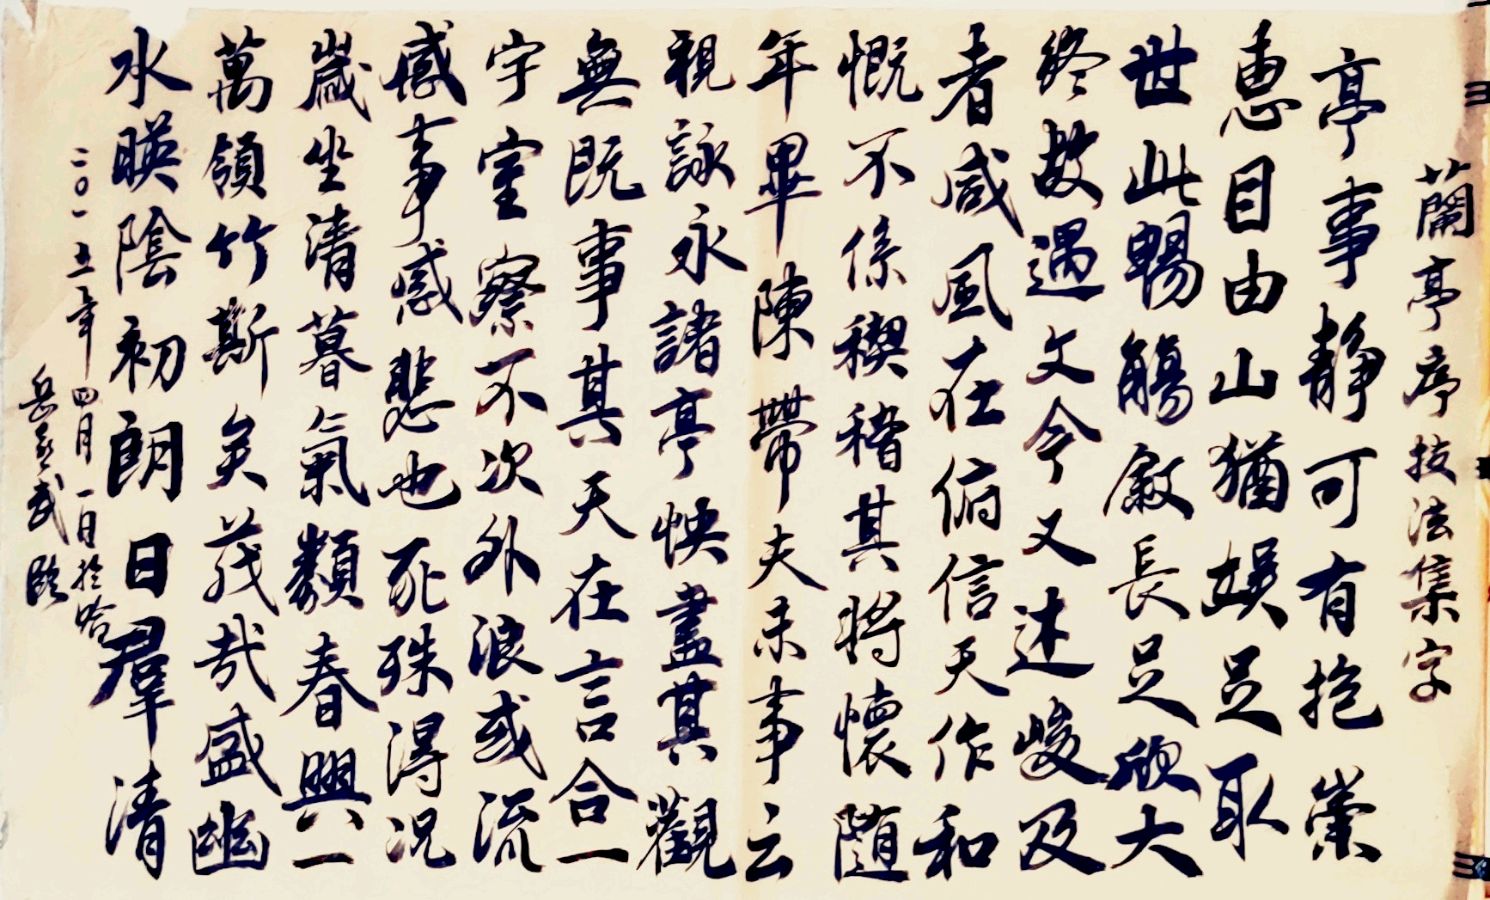 蘭亭序技法集字
亭事靜可有抱崇
惠目由山猶娛足取
世此暢觴敘長足欣大
終故遇文今又述峻及
者咸風在俯信天作和
慨不係稧稽其將懷隨
年畢陳帶夫未事云
視詠永諸亭怏盡其觀
無既事其天在言合一
宇室察不次外浪或流
感事感悲也死殊得況
歲坐清暮氣類春興一
萬領竹斯矣茂哉盛幽
水暎陰初朗日羣清
二〇一五年四月一日於哈